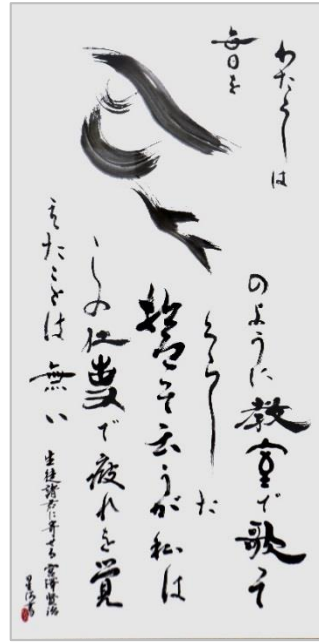 わたくしは
毎日を
のように教室で歌って
くらした
誓って云うが私は
この仕事で疲れを覚
えたことは無い
生徒諸君に寄せる 宮澤賢治